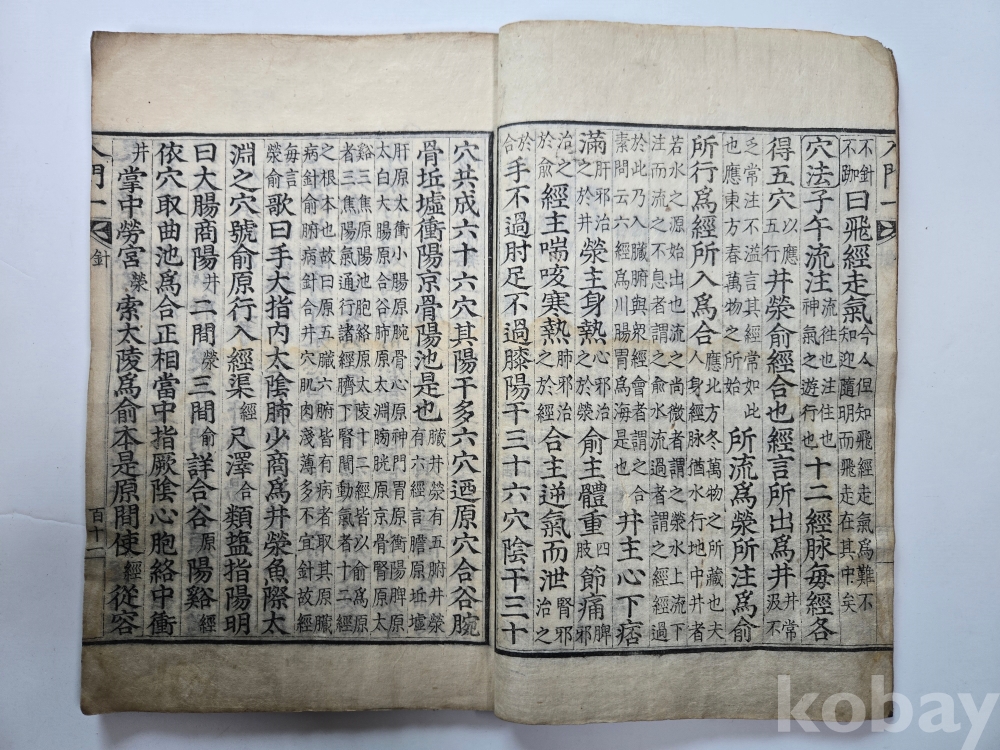 不針不跏曰飛經走氣今人但知飛經走氣爲難不知迎隨明而飛走在其中矣
穴法子午流注流往也注住也神氣之遊行也十二經脉每經各
得五穴以應五行井滎俞經合也經言所出爲井井常汲不
乏常注不溢言其經常如此也應東方春萬物之所始所流爲滎所注爲俞
所行爲經所入爲合應北方冬萬物之所藏也夫人身經脉猶水行地中井者
若水之源始出也流之尚微者謂之滎水上流下注而流之不息者謂之俞水流過者謂之經經過
於此乃入臟腑與衆經會者謂之合素問云六經爲川腸胃爲海是也井主心下痞
滿肝邪治之於井滎主身熱心邪治之於滎俞主體重四肢節痛脾邪
治之於俞經主喘咳寒熱肺邪治之於經合主逆氣而泄腎邪治之
於合手不過肘足不過膝陽干三十六穴陰干三十
穴共成六十六穴其陽干多六穴迺原穴合谷腕
骨坵墟衝陽京骨陽池是也臟井滎有五腑井滎有六經言膽原坵墟
肝原太衝小腸原腕骨心原神門胃原衝陽脾原太白大腸原合谷肺原太淵胸胱原京骨腎原太
谿三焦原陽池胞絡原太陵十二經皆以俞爲原者三焦陽氣通行諸經臍下腎間動氣者十二經
之根本也故曰原五臟六腑皆有病者取其原臟病針俞腑病針合井穴肌肉淺薄多不宜針故經
每言滎俞歌曰手大指内太陰肺少商爲井滎魚際太
淵之穴號俞原行入經渠經尺澤合類盬指陽明
曰大腸商陽井二間滎三間俞詳合谷原陽谿經
依穴取曲池爲合正相當中指厥陰心胞絡中衝
井掌中勞宮滎索太陵爲俞本是原間使經從容
入門一 針 百十二
kobay